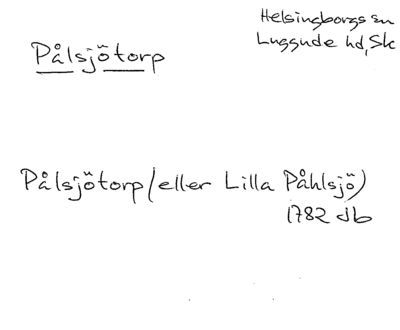 Helsingborgs sn
Luggude hd, Sk
Pålsjötorp
Pålsjötorp (eller Lilla Påhlsjö)
1782 db